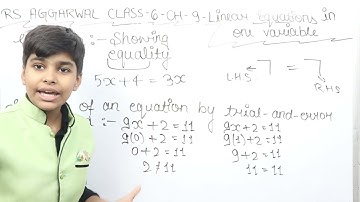 RS AGGARWAL CLASS-6-CH-9-Linear Equations in
one variable
:- Showing
equality
5x+4=3x
LHS = RHS
of an equation by trial-and-error
:- 9x+2=11
9(0)+2=11
0+2=11
2≠11
9x+2=11
9(1)+2=11
9+2=11
11=11